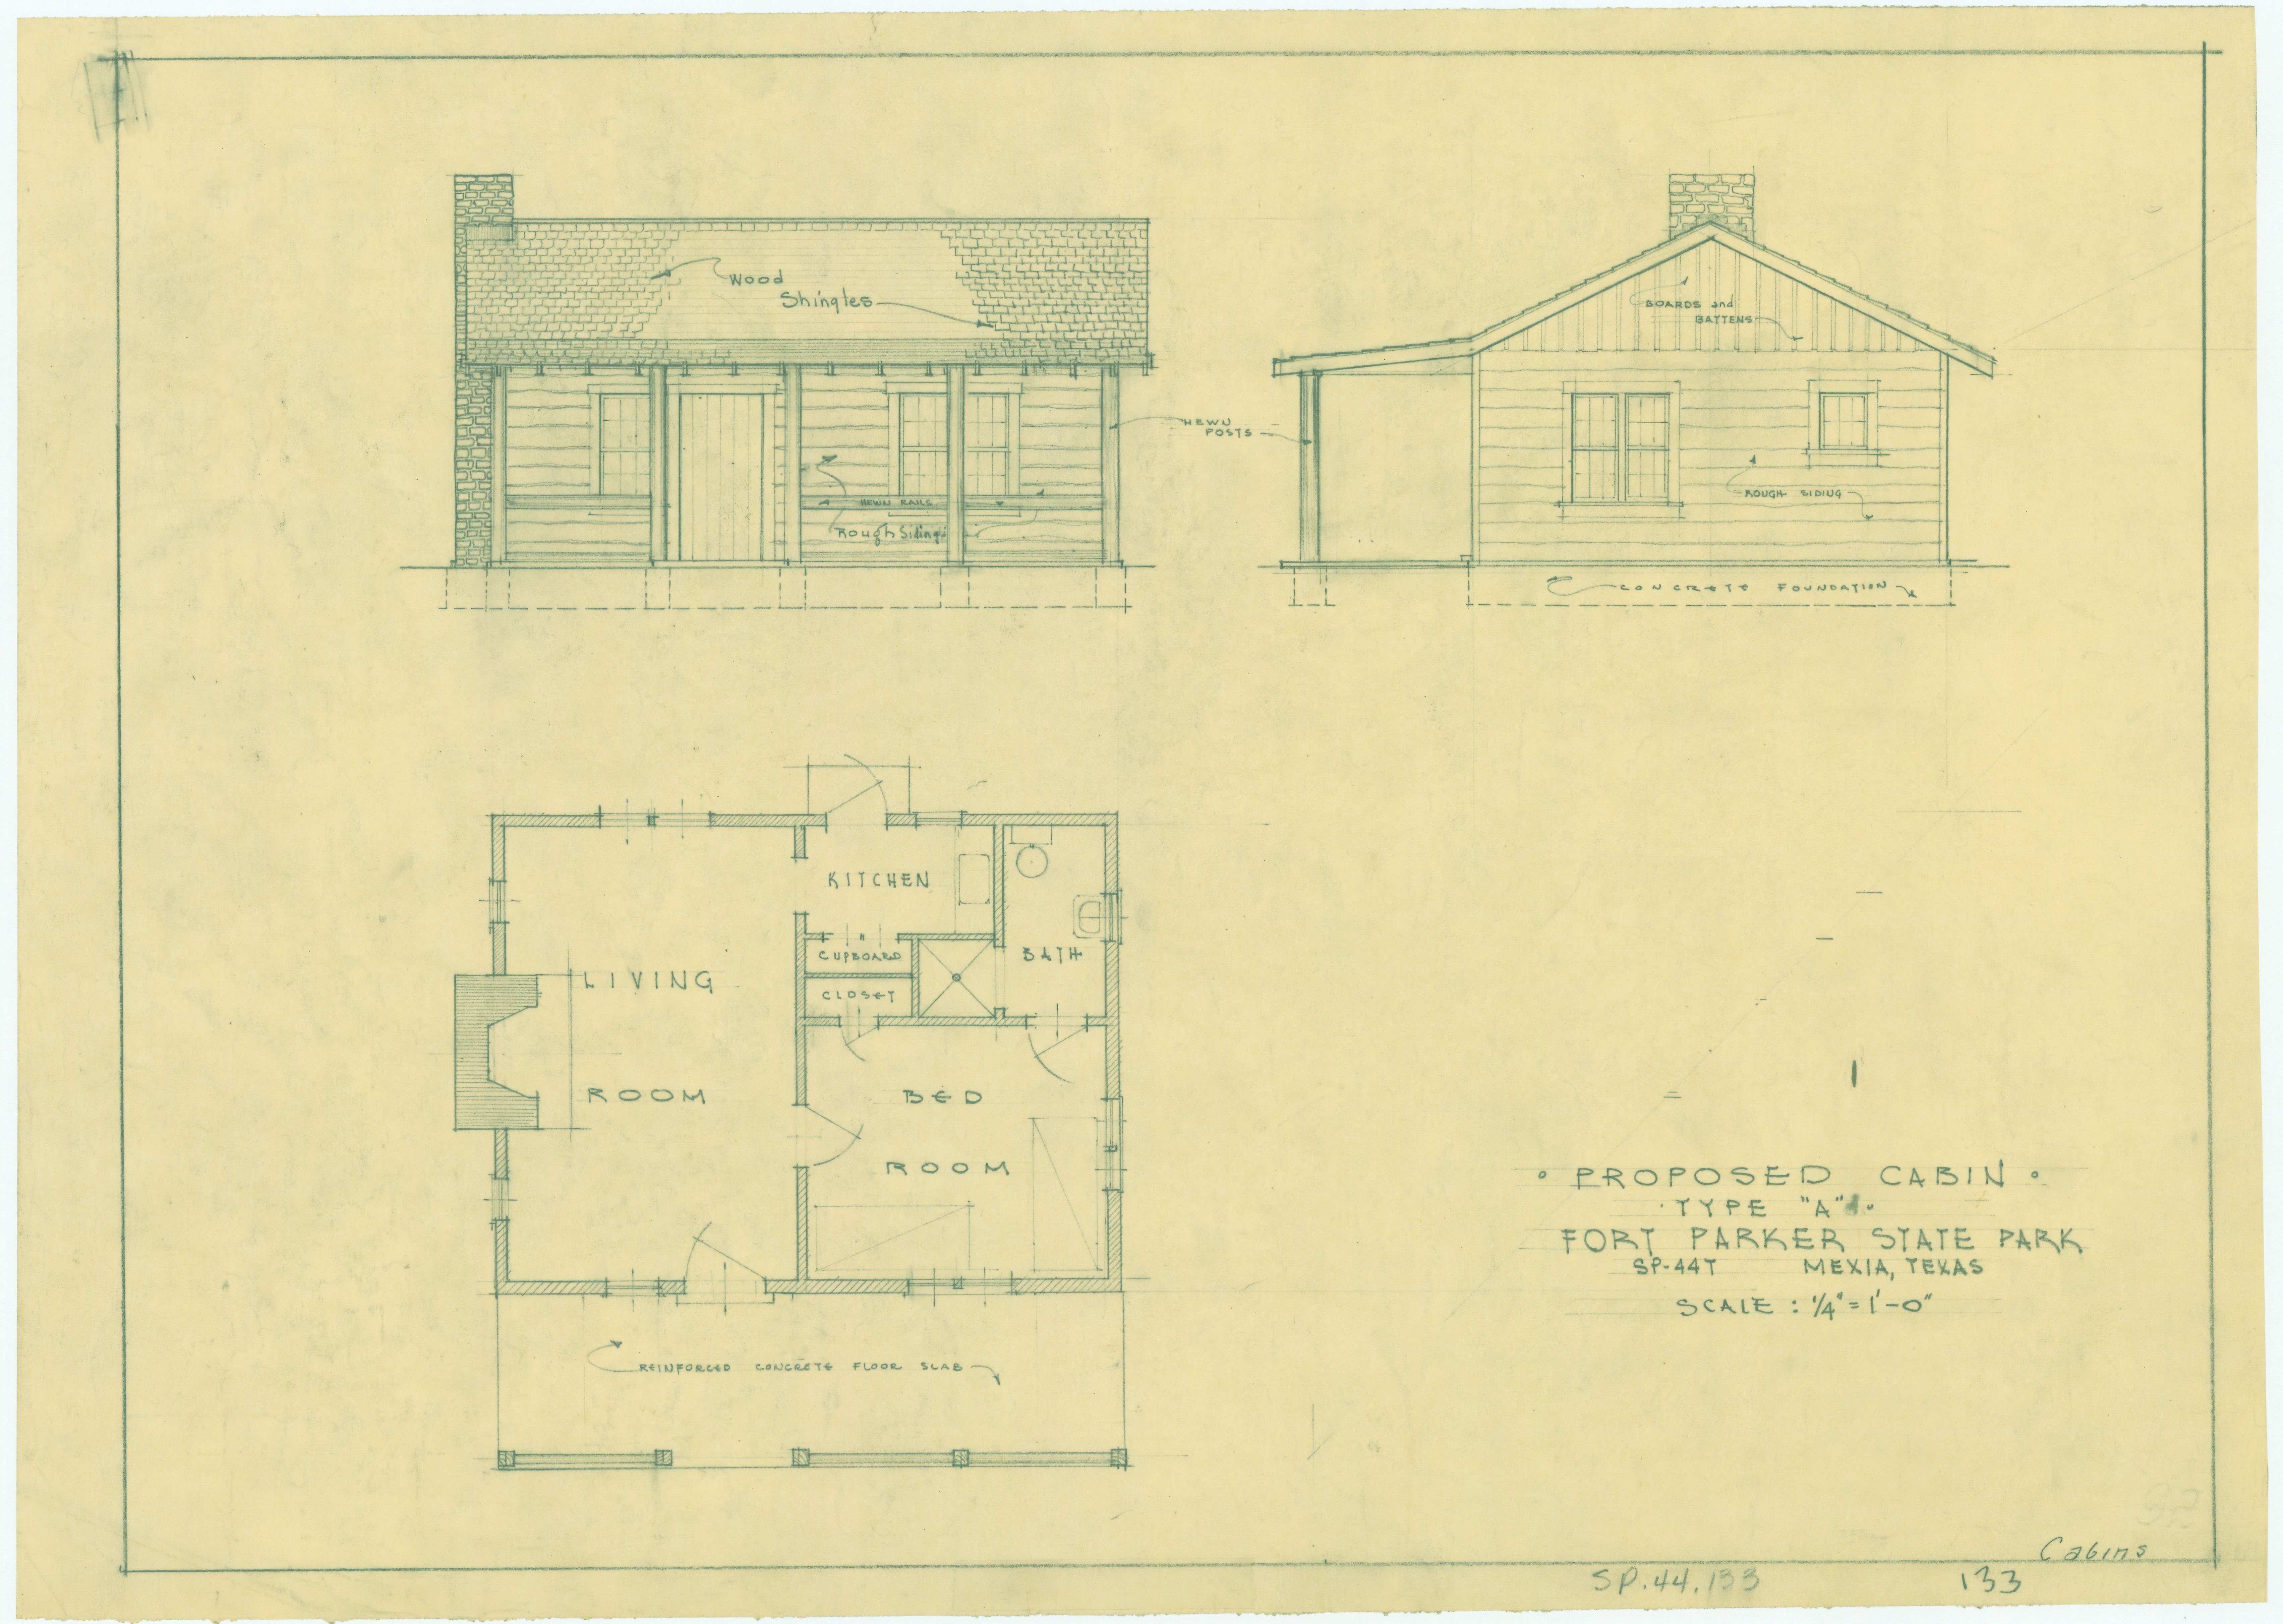 Wood
Shingles
HEWN RAILS
Rough Siding
HEWN
POSTS
BOARDS and
BATTENS
ROUGH SIDING
CONCRETE FOUNDATION
KITCHEN
CUPBOARD
CLOSET
BATH
LIVING
ROOM
BED
ROOM
REINFORCED CONCRETE FLOOR SLAB
• PROPOSED CABIN •
• TYPE "A" •
FORT PARKER STATE PARK
SP-44T MEXIA, TEXAS
SCALE : 1/4" = 1'-0"
Cabins
SP.44.133
133